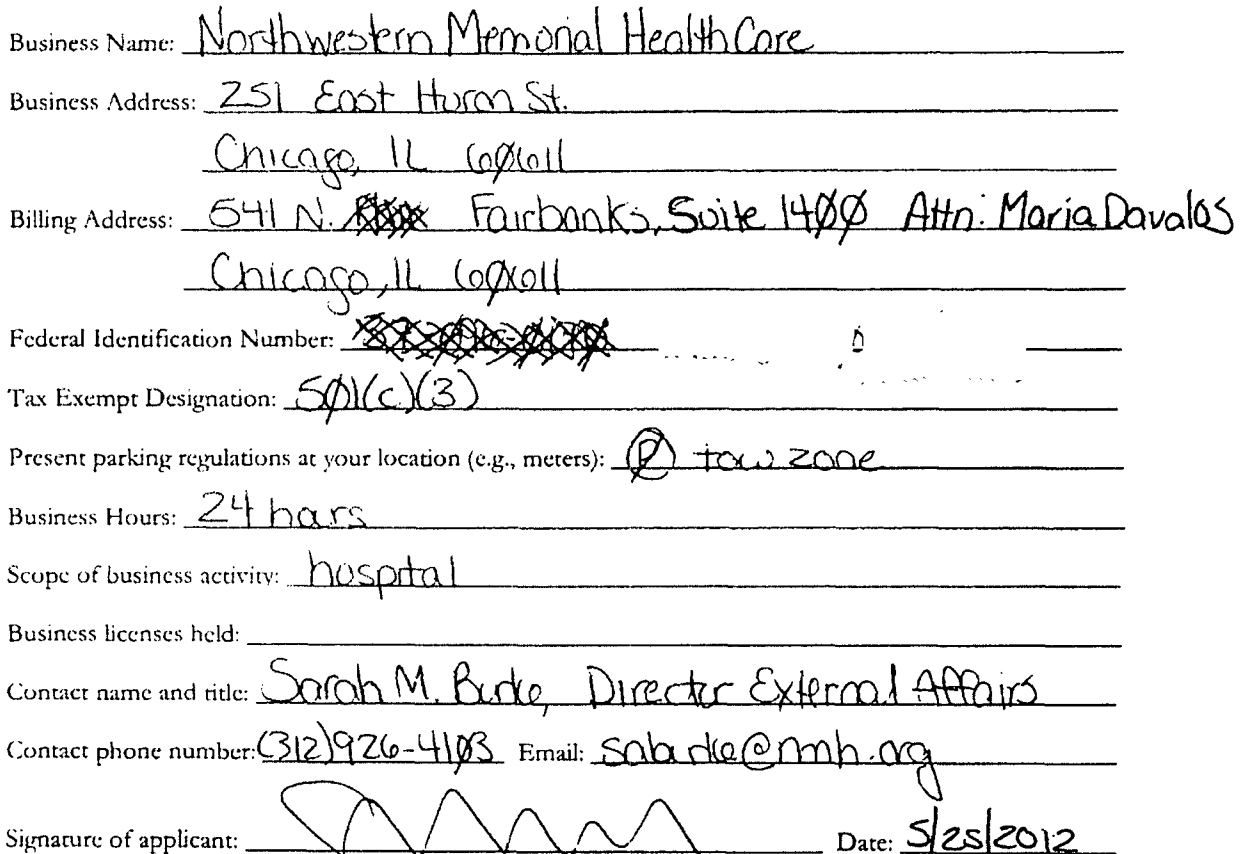 Business Name: Northwestern Memorial HealthCare
Business Address: 251 East Huron St.
Chicago, IL 60611
Billing Address: 541 N. Fairbanks, Suite 1400 Attn: Maria Davalos
Chicago, IL 60611
Federal Identification Number:
Tax Exempt Designation: 501(c)(3)
Present parking regulations at your location (e.g., meters): Ⓟ tow zone
Business Hours: 24 hours
Scope of business activity: hospital
Business licenses held:
Contact name and title: Sarah M. Burke, Director External Affairs
Contact phone number: (312)926-4103 Email: saburke@nmh.org
Signature of applicant: Date: 5/25/2012